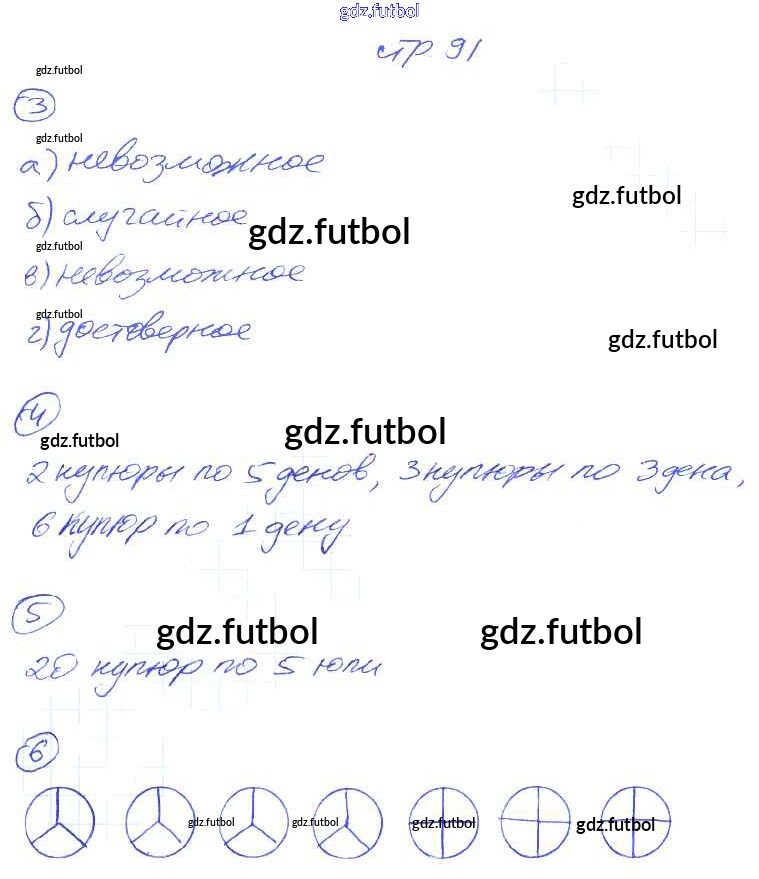 gdz.futbol
стр. 91
gdz.futbol
3
gdz.futbol
а) невозможное
gdz.futbol
б) случайное
gdz.futbol
gdz.futbol
в) невозможное
gdz.futbol
г) достоверное
gdz.futbol
4
gdz.futbol
gdz.futbol
2 купюры по 5 денов, 3 купюры по 3 дена,
6 купюр по 1 дену
5
gdz.futbol gdz.futbol
20 купюр по 5 юпи
6
gdz.futbol gdz.futbol gdz.futbol gdz.futbol